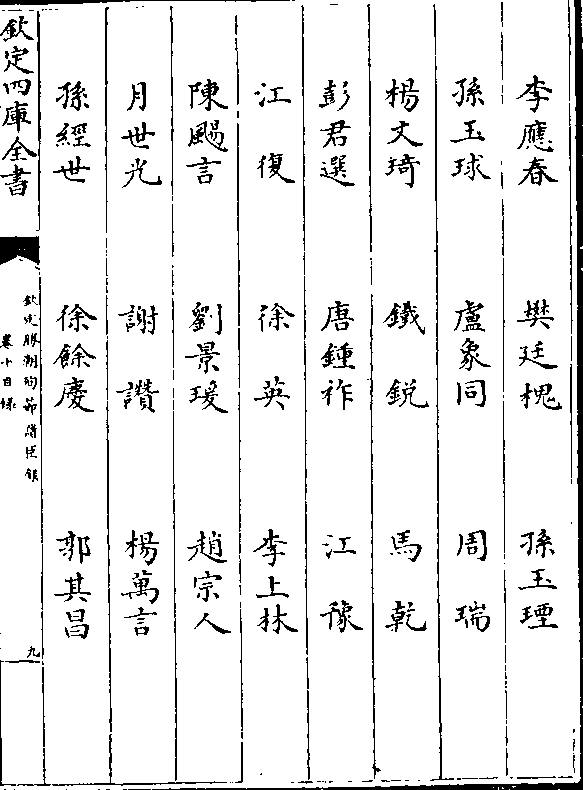 李應春 樊廷槐 孫玉瑆
孫玉球 盧象同 周瑞
楊文琦 鐵銳 馬乾
彭君選 唐鍾祚 江豫
江復 徐英 李上林
陳颺言 劉景瑗 趙宗人
月世光 謝讚 楊萬言
孫經世 徐餘慶 郭其昌
欽定四庫全書
欽定勝朝殉節諸臣錄
卷十目錄
九